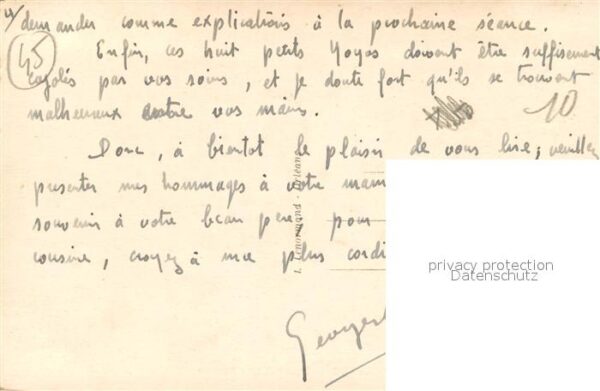 demander comme explications à la prochaine séance.
45
Enfin, ces huit petits Yoyos doivent être suffisement
cajolés par vos soins, et je doute fort qu'ils se trouvent
malheureux entre vos mains.
10
Donc, à bientot le plaisir de vous lire; veuillez
presenter mes hommages à votre mam
souvenir à votre beau pere pour
cousine, croyez à me plus cordi
L. Lenormand - Orléans
Georges
privacy protection
Datenschutz